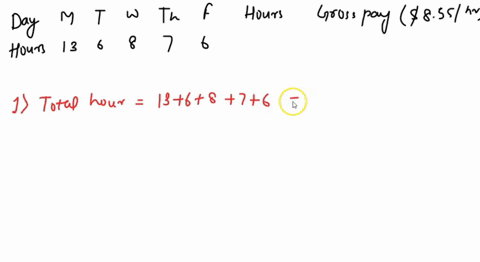 Day M T W Th F Hours Gross pay ($8.55/hr
Hours 13 6 8 7 6
1) Total hour = 13+6+8+7+6